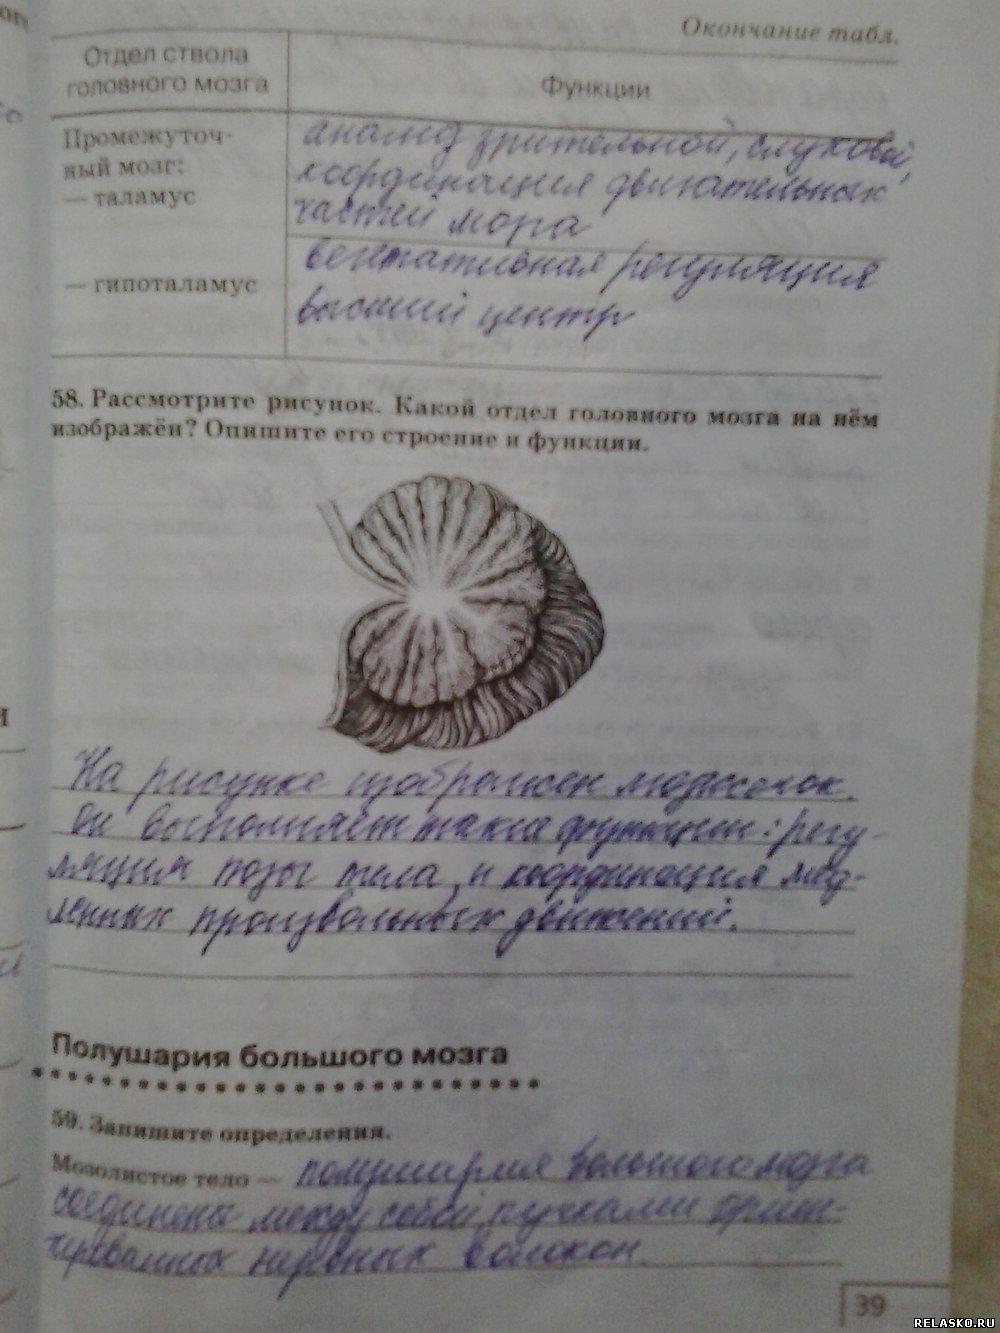 Окончание табл.
Отдел ствола
головного мозга
Функции
Промежуточ-
ный мозг:
— таламус
анализ зрительной, слуховой,
координация двигательных
частей мора
— гипоталамус
вегетативная регуляция
высший центр
58. Рассмотрите рисунок. Какой отдел головного мозга на нём
изображён? Опишите его строение и функции.
На рисунке изображен мозжечок.
Он выполняет такие функции: регу-
ляция позы тела и координация мед-
ленных произвольных движений.
Полушария большого мозга
59. Запишите определения.
Мозолистое тело — полушария большого мозга
соединены между собой пучками
нервных волокон.
39
RELASKO.RU